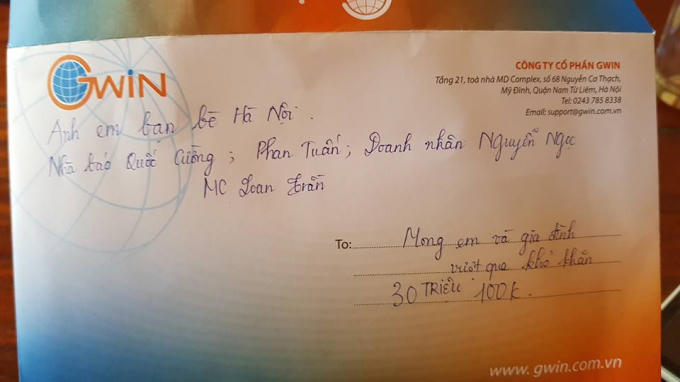 GWIN
CÔNG TY CỔ PHẦN GWIN
Tầng 21, toà nhà MD Complex, số 68 Nguyễn Cơ Thạch,
Mỹ Đình, Quận Nam Từ Liêm, Hà Nội
Tel: 0243 785 8338
Email: support@gwin.com.vn
Anh em bạn bè Hà Nội.
Nhà báo Quốc Cường; Phan Tuấn; Doanh nhân Nguyễn Ngọc
MC Loan Trần
To: Mong em và gia đình
vượt qua khó khăn
30 TRIỆU 100K.
www.gwin.com.vn